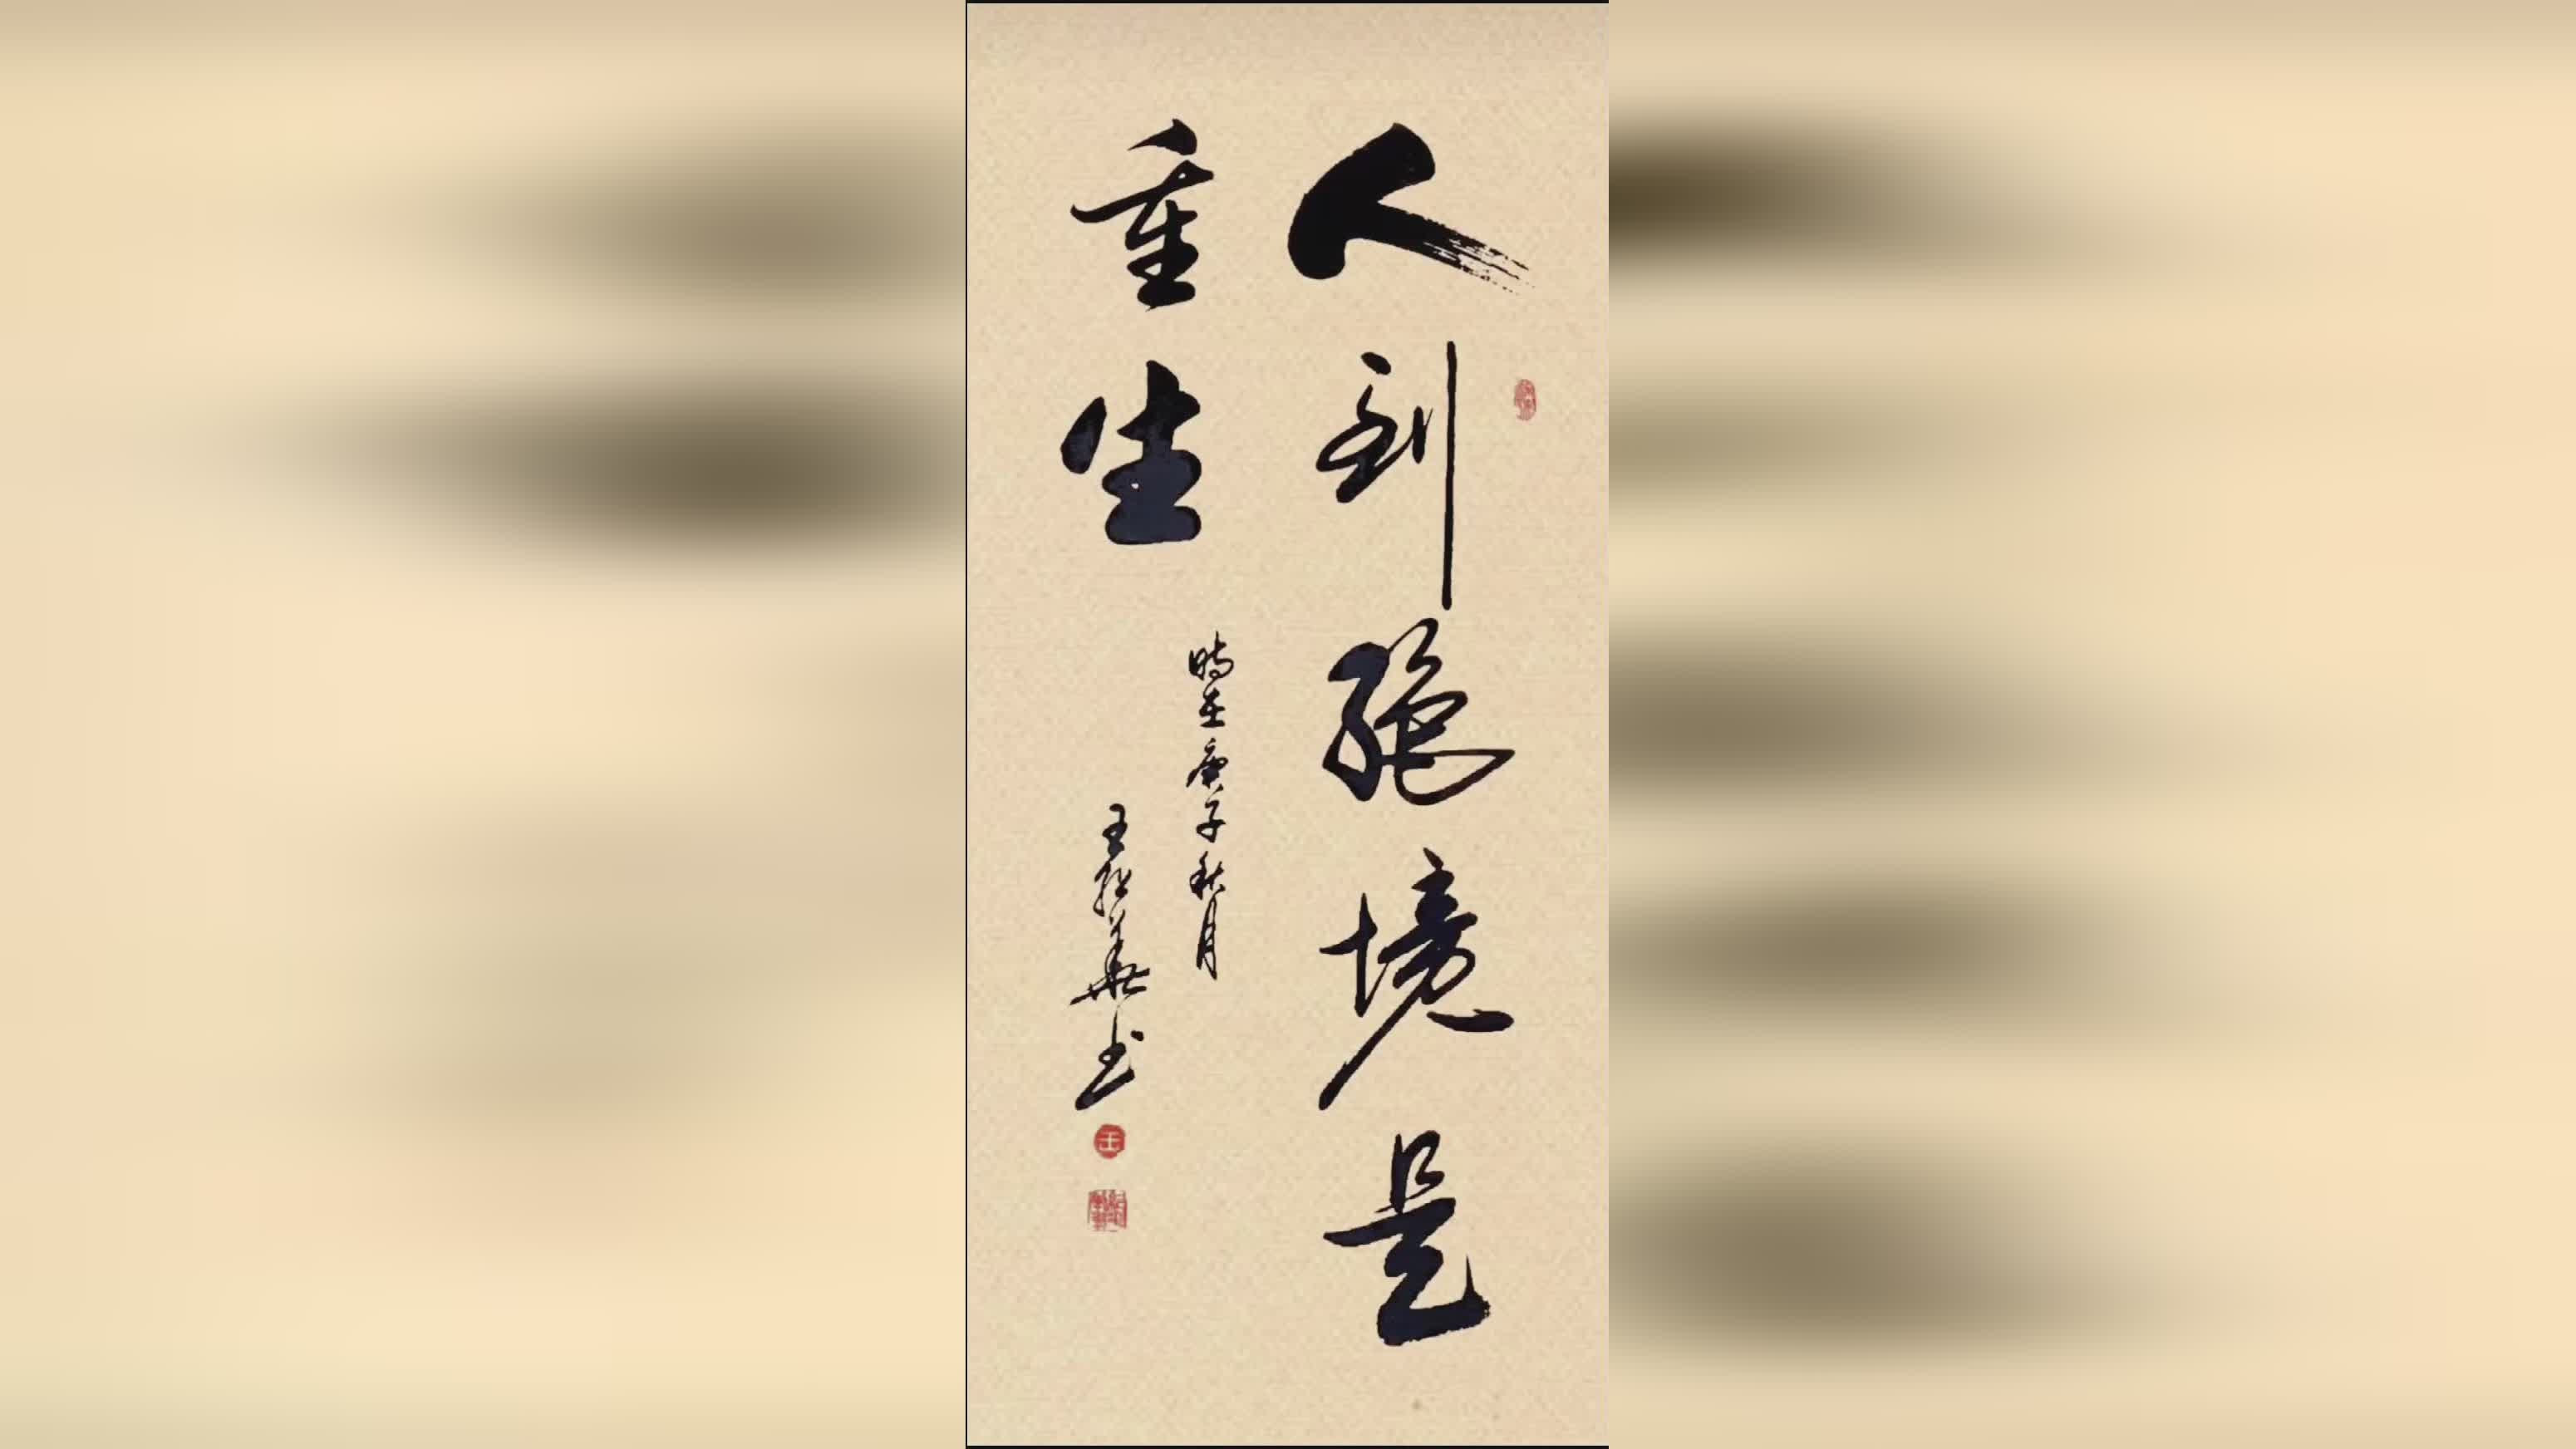 人到絕境是
重生
時在庚子秋月
王紹華书
王